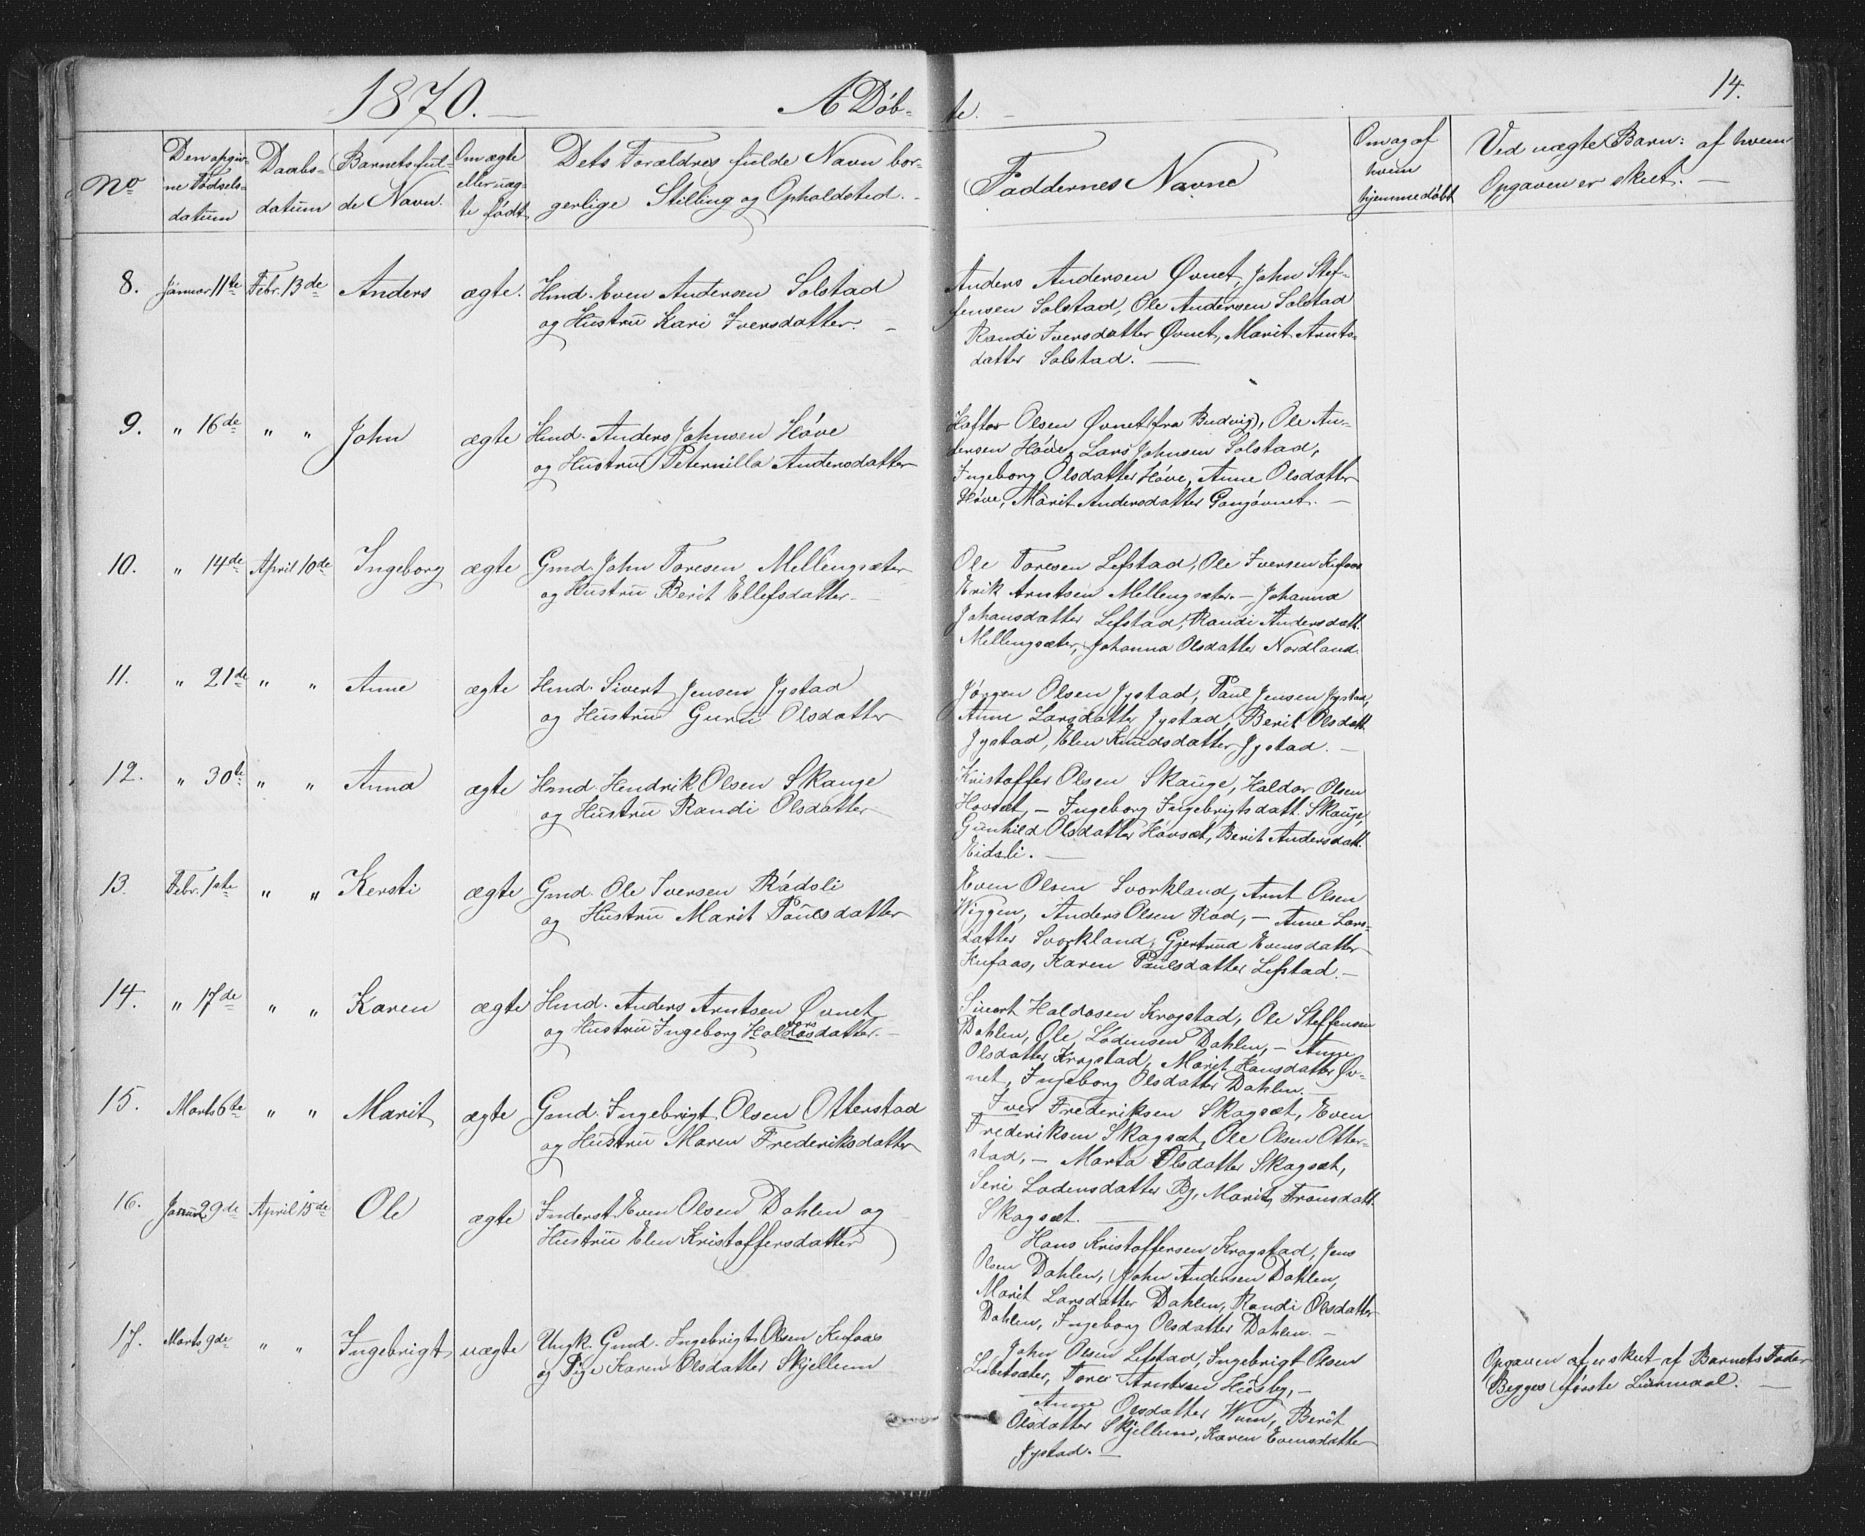 1870. A Døb-
te.
14.
No
Den opgiv-
ne Fødsels-
datum
Daabs-
datum
Barnets ful-
de Navn.
Om ægte
eller uæg-
te født
Dets Forældres fulde Navn bor-
gerlige Stilling og Opholdsted.
Faddernes Navne
Om og af
hvem
hjemmedøbt
Ved uægte Barn: af hvem
Opgaven er skeet.
8. Januar 11te Febr. 13de Anders ægte. Hmd. Even Andersen Solstad
og Hustru Kari Iversdatter.
Anders Andersen Øvnet, John Stef-
fensen Solstad, Ole Andersen Solstad
Randi Iversdatter Øvnet, Marit Arnts-
datter Solstad.
9. " 16de " " John ægte Hmd. Anders Johnsen Høve
og Hustru Peternilla Andersdatter
Haftor Olsen Øvnet (fra Budvig), Ole An-
dersen Høve, Lars Johnsen Solstad,
Ingeborg Olsdatter Høve, Anne Olsdatter
Høve, Marit Andersdatter Gangøvnet.
10. " 14de April 10de Ingeborg ægte Gmd. John Toresen Mellengsæter
og Hustru Berit Ellefsdatter.
Ole Toresen Lefstad, Ole Iversen Kufaas
Erik Arntsen Mellengsæter. - Johanna
Johansdatter Lefstad, Randi Andersdatt.
Mellengsæter, Johanna Olsdatter Nordland.
11. " 21de " " Anne ægte Hmd. Sivert Jensen Jystad
og Hustru Guru Olsdatter
Jørgen Olsen Jystad, Paul Jensen Jystad,
Anne Larsdatter Jystad, Berit Olsdatt.
Jystad, Elen Knudsdatter Jystad.
12. " 30te " " Anna ægte Hmd. Hendrik Olsen Skauge
og Hustru Randi Olsdatter
Kristoffer Olsen Skauge, Haldor Olsen
Hovsæt, - Ingeborg Ingebrigtsdatt. Skauge,
Gunhild Olsdatter Hovsæt, Berit Andersdatt.
Eidsli.
13. Febr. 1ste " " Kersti ægte Gmd. Ole Iversen Rádsli
og Hustru Marit Paulsdatter
Even Olsen Svorkland, Arnt Olsen
Wiggen, Anders Olsen Rod, - Anne Lars-
datter Svorkland, Gjertrud Evensdatter
Kufaas, Karen Paulsdatter Lefstad. -
14. " 17de " " Karen ægte Hmd. Anders Arntsen Øvnet
og Hustru Ingeborg Haldosdatter. -
Sivert Haldosen Krogstad, Ole Steffensen
Dahlen, Ole Lodensen Dahlen, - Anne
Olsdatter Krogstad, Marit Hansdatter Øv-
net, Ingeborg Olsdatter Dahlen.
15. Marts 6te " " Marit ægte Gmd. Ingebrigt Olsen Otterstad
og Hustru Maren Frederiksdatter
Iver Frederiksen Skogsæt, Even
Frederiksen Skogsæt, Ole Olsen Otter-
stad, - Marta Olsdatter Skogsæt,
Seri Lodensdatter By, Marit Fransdatt.
Skogsæt.
16. Januar 29de April 15de Ole ægte Inderst Even Olsen Dahlen og
Hustru Elen Kristoffersdatter
Hans Kristoffersen Krogstad, Jens
Olsen Dahlen, John Andersen Dahlen,
Marit Larsdatter Dahlen, Randi Olsdatter
Dahlen, Ingeborg Olsdatter Dahlen.
17. Marts 9de " " Ingebrigt uægte Ungk. Gmd. Ingebrigt Olsen Kufaas
og Pige Karen Olsdatter Skjellum
John Olsen Lefstad, Ingebrigt Olsen
Lisbetsæter, Tore Arntsen Husby, -
Anne Olsdatter Wum, Berit
Olsdatter Skjellum, Karen Evensdatter
Jystad. -
Opgaven af er skeet af Barnets Fader
Begges første Leiermaal.